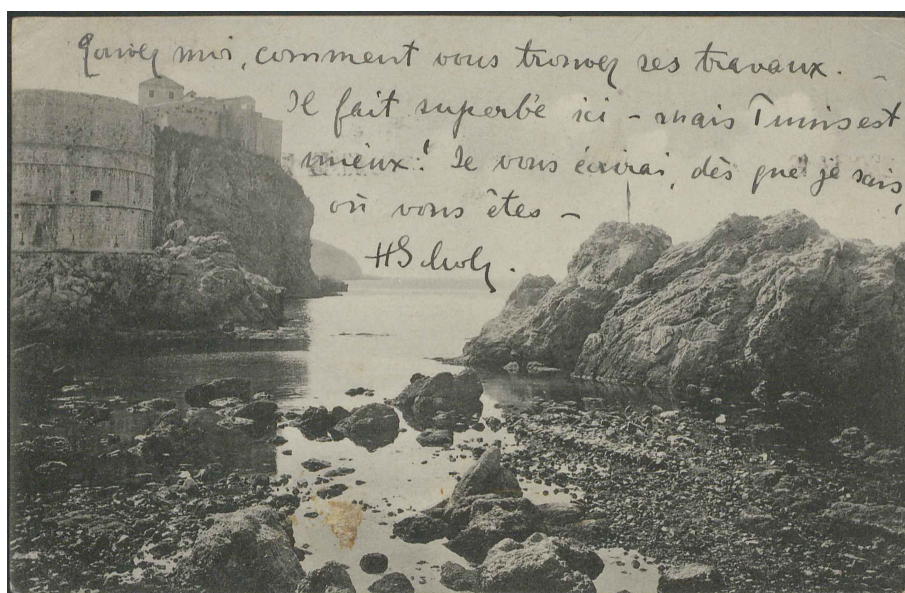 moi, comment vous trouvez ses travaux. -
Il fait superbe ici - mais Tunis est
mieux! Je vous écrirai, dès que je sais,
où vous êtes -
HScholz.